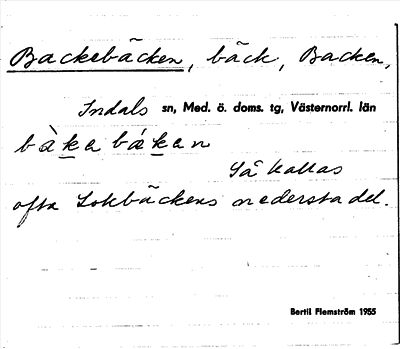 Backebäcken, bäck, Backen,
Indals sn, Med. ö. doms. tg, Västernorrl. län
bàkabákan
Så kallas
ofta Lokbäckens nedersta del.
Bertil Flemström 1955